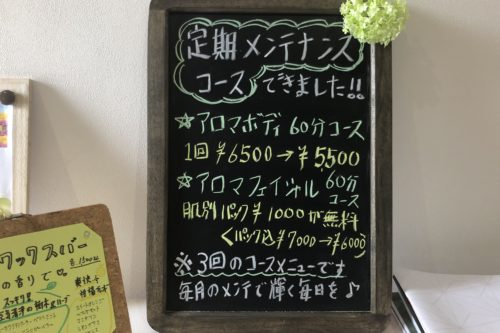 定期メンテナンス
コースできました!!
☆アロマボディ 60分コース
1回 ¥6500→¥5,500
☆アロマフェイシャル 60分
コース
肌別パック¥1000が無料
くパック込¥7000→¥6000)
※3回のコースメニューです
毎月のメンテで輝く毎日を♪
ワックスバー
の香りで。
スッキリ系